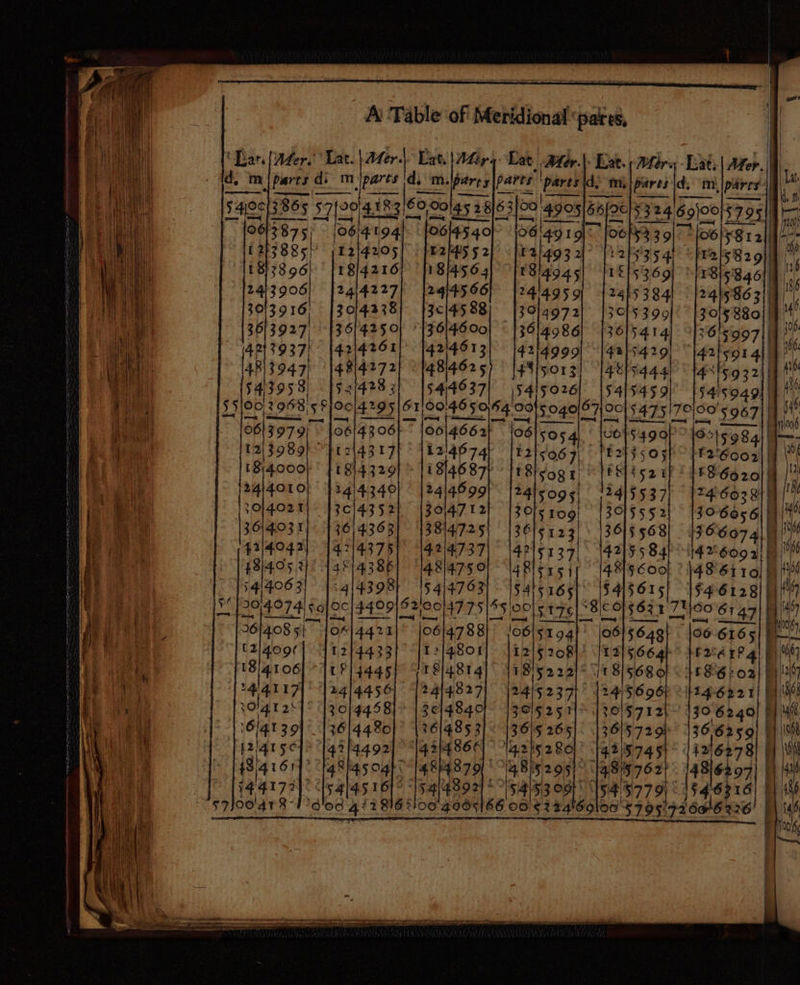 A Table of Meridional partes,
Lat. Mer. Lat. Mer. Lat. Mer. Lat. Mer. Lat. Mer. Lat. Mer.
d. m parts d. m parts d. m. parts parts parts d. m. parts d. m. parts
54 00 3865 57 00 4183 60 00 4528 63 00 4905 66 00 5324 69 00 5795
06 3875 06 4194 06 4540 06 4919 06 5339 06 5812
12 3885 12 4205 12 4552 12 4932 12 5354 12 5829
18 3896 18 4216 18 4564 18 4945 18 5369 18 5846
24 3906 24 4227 24 4566 24 4959 24 5384 24 5863
30 3916 30 4238 30 4588 30 4972 30 5399 30 5880
36 3927 36 4250 36 4600 36 4986 36 5414 36 5997
42 3937 42 4261 42 4613 42 4999 42 5429 42 5914
48 3947 48 4272 48 4625 48 5013 48 5444 48 5932
54 3958 54 4283 54 4637 54 5026 54 5459 54 5949
55 00 3968 58 00 4295 61 00 4650 64 00 5040 67 00 5475 70 00 5967
06 3979 06 4306 06 4662 06 5054 06 5490 06 5984
12 3989 12 4317 12 4674 12 5067 12 5505 12 6002
18 4000 18 4329 18 4687 18 5081 18 5521 18 6020
24 4010 24 4340 24 4699 24 5095 24 5537 24 6038
30 4021 30 4352 30 4712 30 5109 30 5552 30 6056
36 4031 36 4363 38 4725 36 5123 36 5568 36 6074
42 4042 42 4375 42 4737 42 5137 42 5584 42 6092
48 4052 48 4386 48 4750 48 5151 48 5600 48 6110
54 4063 54 4398 54 4763 54 5165 54 5615 54 6128
56 00 4074 59 00 4409 62 00 4775 65 00 5179 68 00 5631 71 00 6147
06 4085 06 4421 06 4788 06 5194 06 5648 06 6165
12 4096 12 4433 12 4801 12 5208 12 5664 12 6184
18 4106 18 4445 18 4814 18 5222 18 5680 18 6202
24 4117 24 4456 24 4827 24 5237 24 5696 24 6221
30 4128 30 4468 30 4840 30 5251 30 5712 30 6240
36 4139 36 4480 36 4853 36 5265 36 5729 36 6259
42 4150 42 4492 42 4866 42 5280 42 5745 42 6278
48 4161 48 4504 48 4879 48 5295 48 5762 48 6297
54 4172 54 4516 54 4892 54 5309 54 5779 54 6316
57 00 418 60 00 4528 63 00 4905 66 00 5324 69 00 5795 72 00 6336